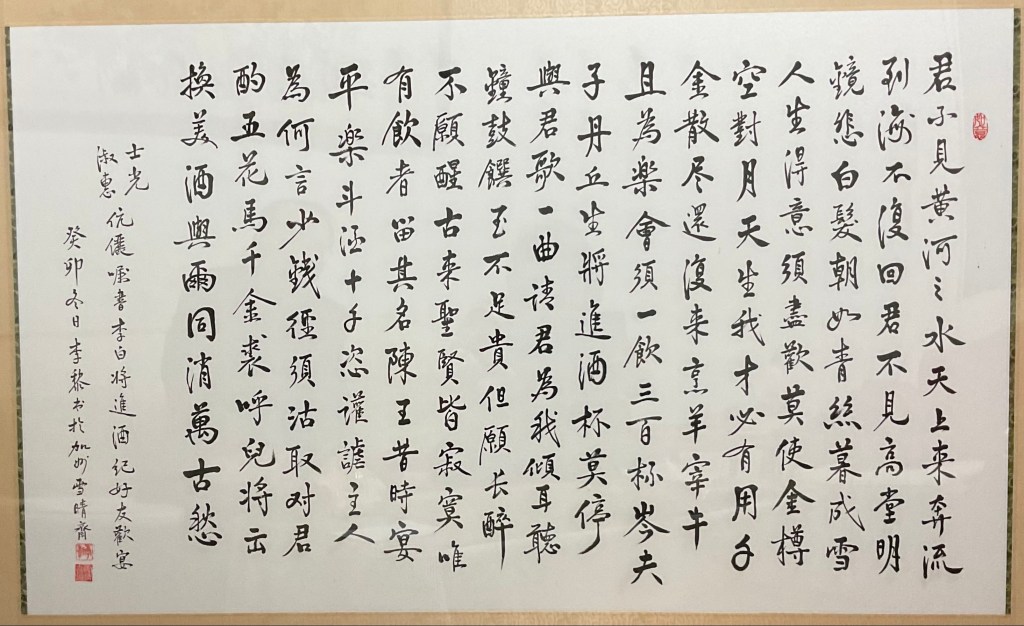 君不見黄河之水天上来奔流
到海不復回君不見高堂明
鏡悲白髮朝如青絲暮成雪
人生得意須盡歡莫使金樽
空對月天生我才必有用千
金散尽還復来烹羊宰牛
且為楽會須一飲三百杯岑夫
子丹丘生將進酒杯莫停
與君歌一曲请君為我傾耳聽
鐘鼓饌玉不足貴但願长醉
不願醒古来聖賢皆寂寞唯
有飲者留其名陳王昔時宴
平楽斗酒十千恣讙謔主人
為何言少錢徑須沽取对君
酌五花馬千金裘呼兒将出
換美酒與爾同消萬古愁
士光
淑惠 伉儷囑書李白将進酒纪好友歡宴
癸卯冬日李黎书於加州雪晴齋